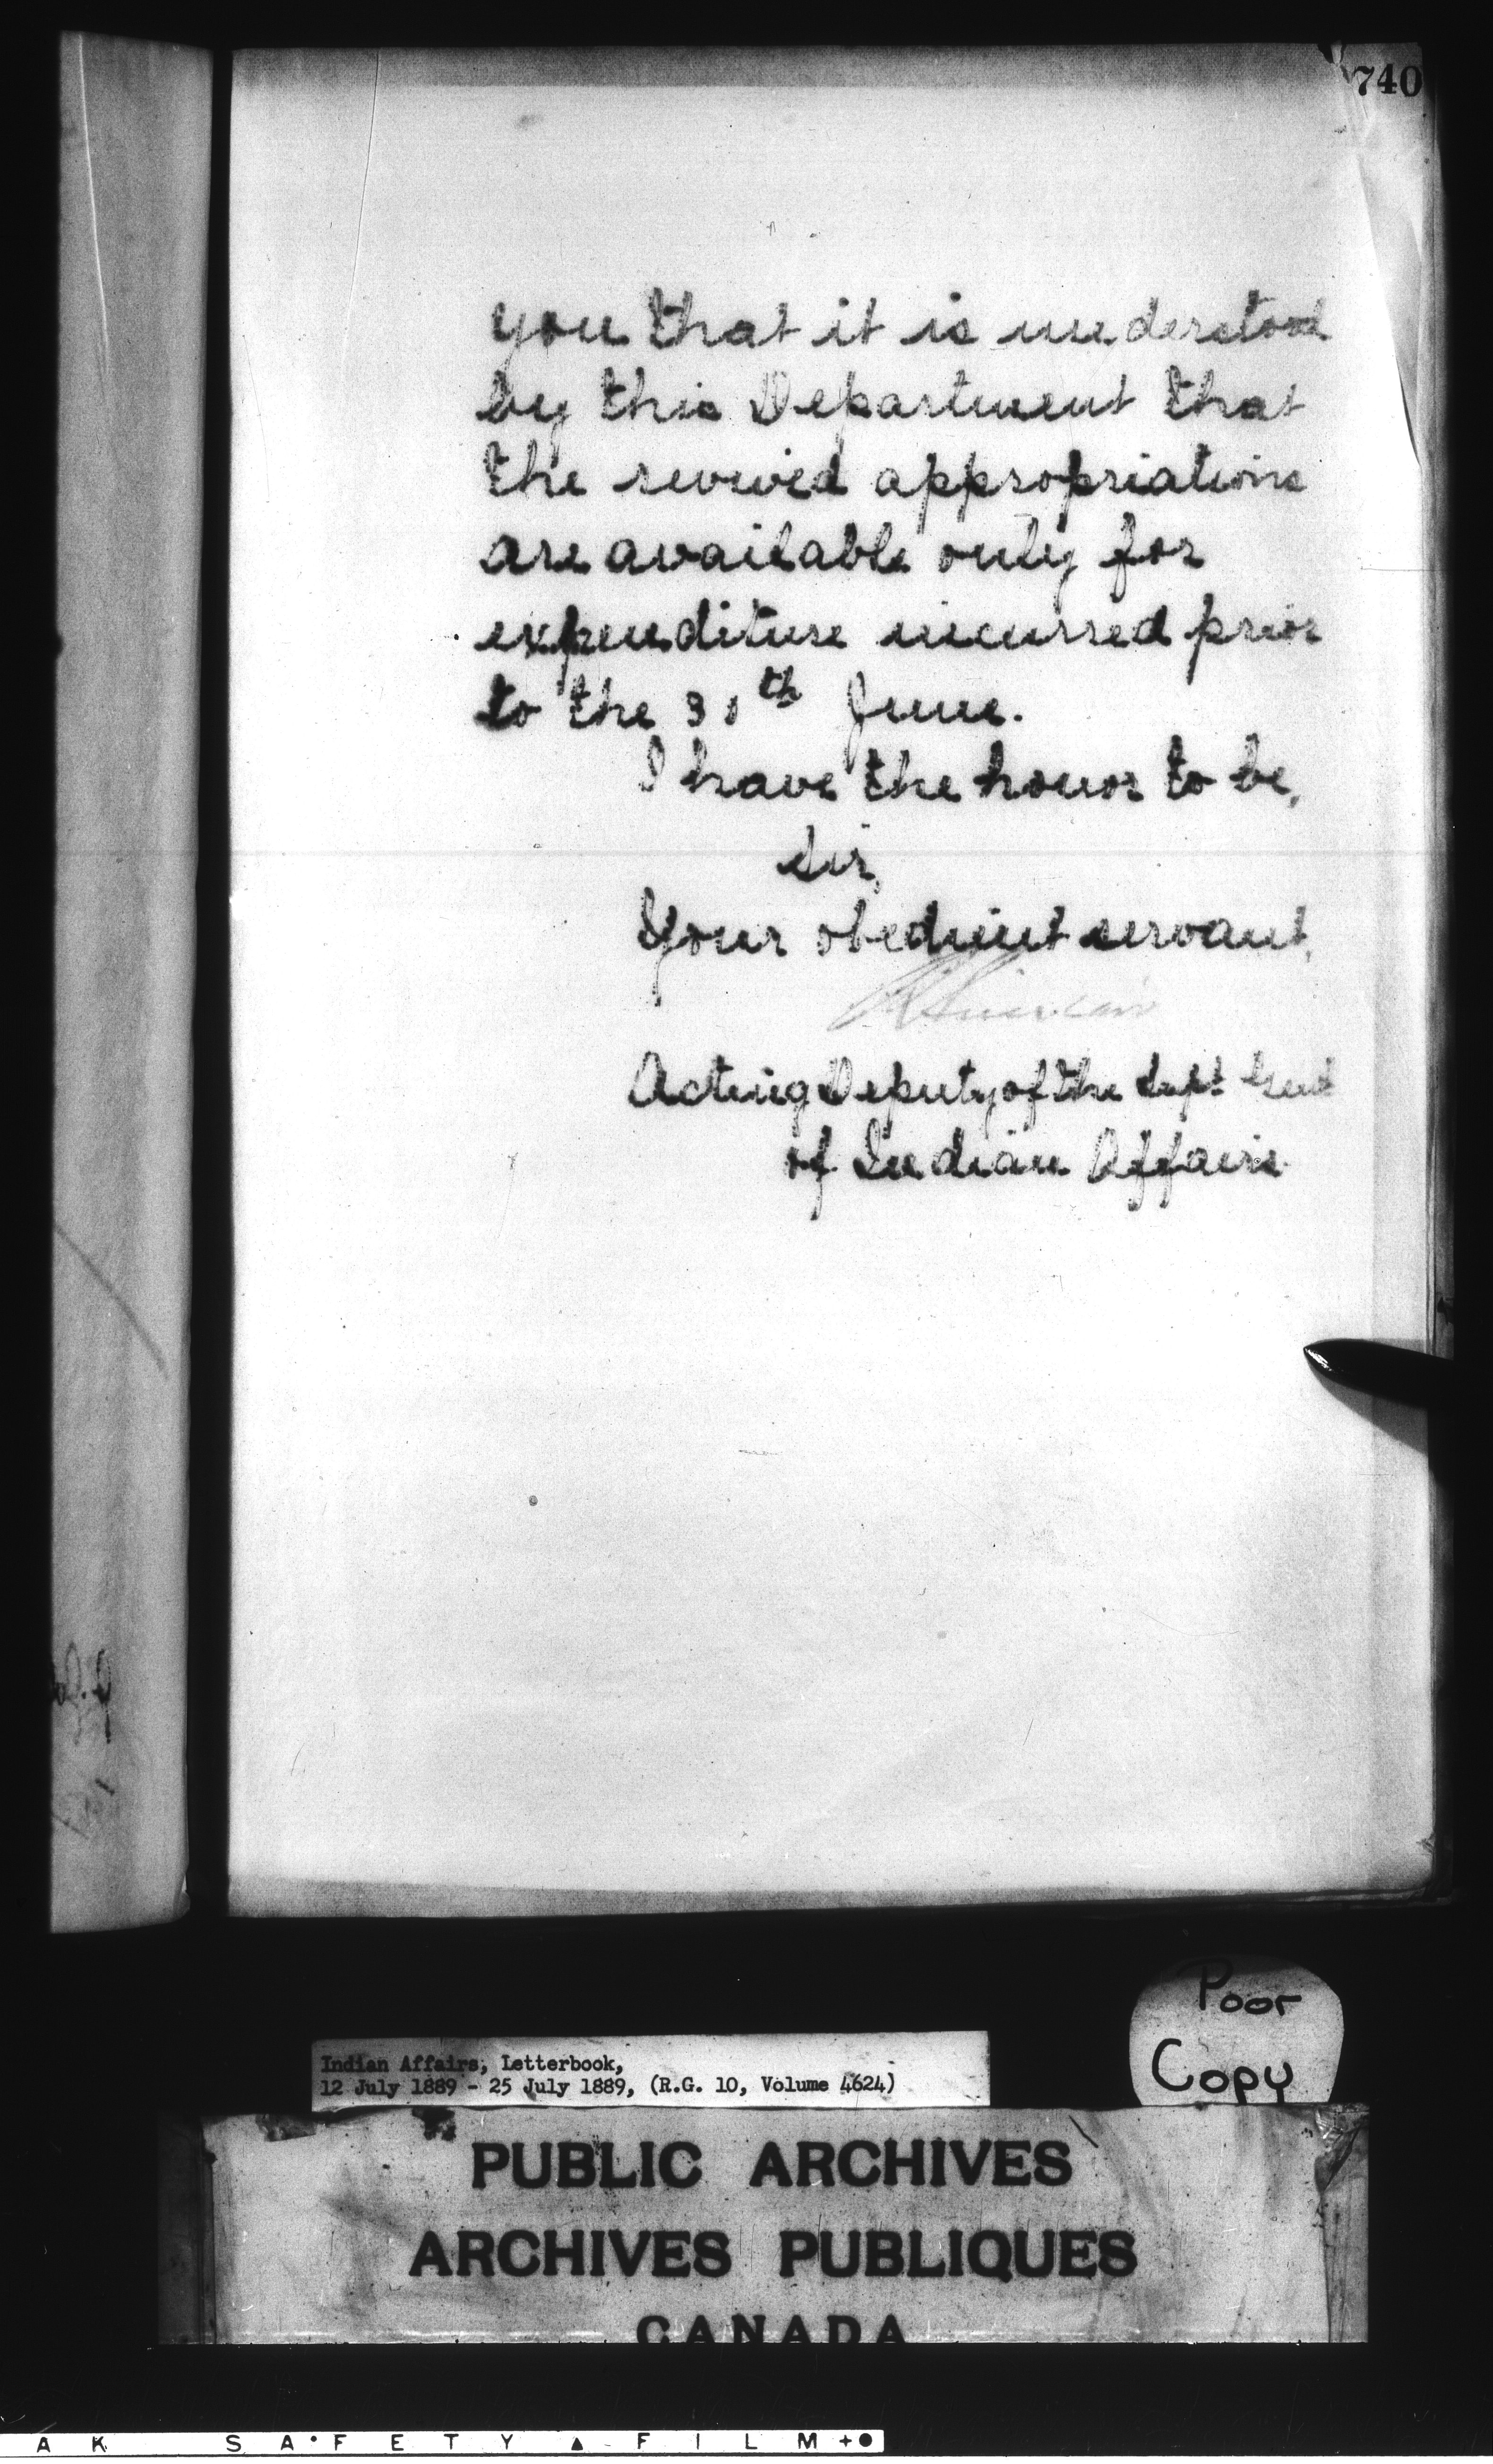 740
you that it is understood
by this Department that
the revived appropriations
are available only for
expenditure incurred prior
to the 30th June.
I have the honor to be,
Sir,
Your obedient servant,
R Sinclair
Acting Deputy of the Supt Genl
of Indian Affairs
Poor
Copy
Indian Affairs, Letterbook,
12 July 1889 - 25 July 1889, (R.G. 10, Volume 4624)
PUBLIC ARCHIVES
ARCHIVES PUBLIQUES
CANADA
A K SA•FETY▲ FILM+●